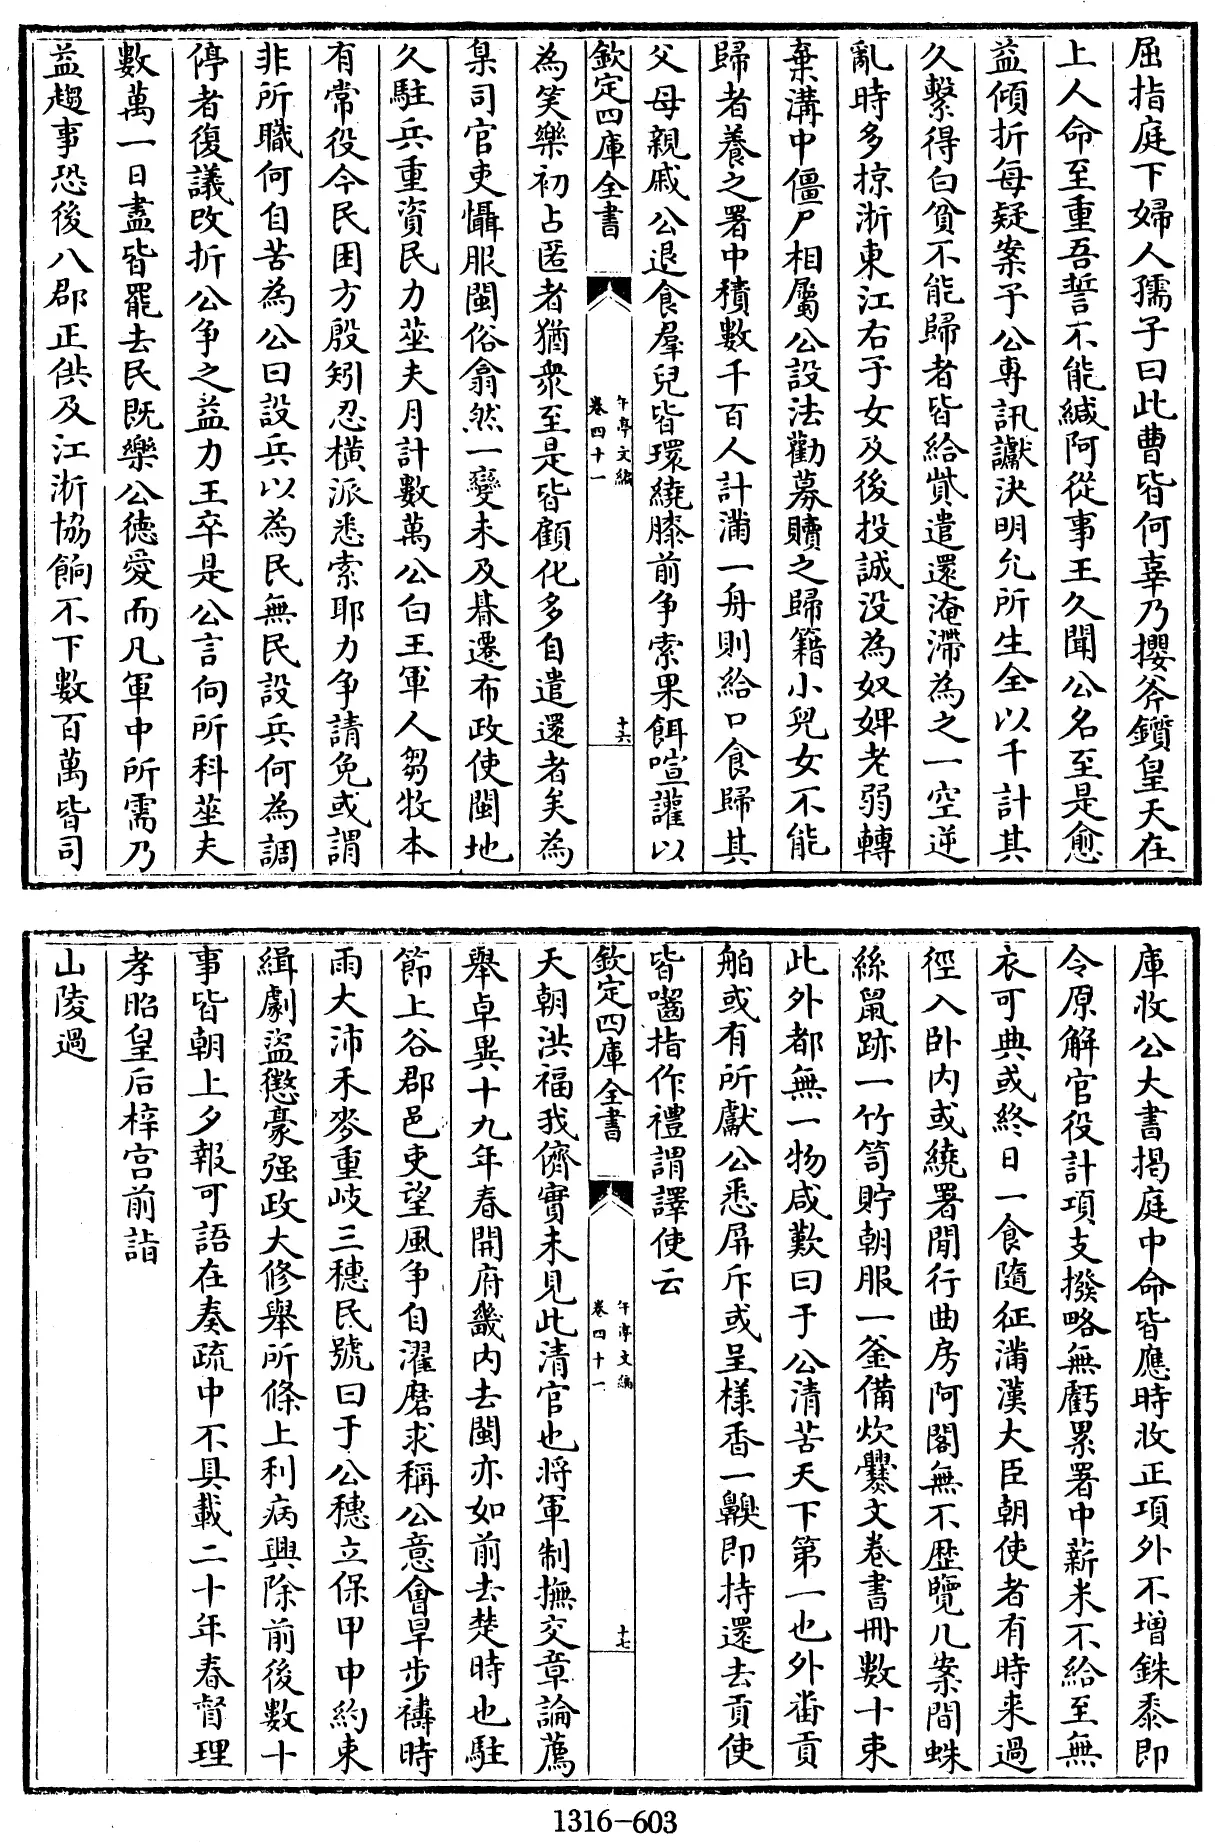 屈指庭下婦人孺子曰此曹皆何辜乃攖斧鑕皇天在
上人命至重吾誓不能緘阿從事王久聞公名至是愈
益傾折每疑案予公專訊讞決明允所生全以千計其
久繫得白貧不能歸者皆給貲遣還淹滯為之一空逆
亂時多掠浙東江右子女及後投誠没為奴婢老弱轉
棄溝中僵尸相屬公設法勸募贖之歸籍小兒女不能
歸者養之署中積數千百人計滿一舟則給口食歸其
父母親戚公退食羣兒皆環繞膝前争索果餌喧讙以
欽定四庫全書
午亭文編
卷四十一
十六
為笑樂初占匿者猶衆至是皆顧化多自遣還者矣為
臬司官吏懾服閩俗翕然一變未及朞遷布政使閩地
久駐兵重資民力莝夫月計數萬公白王軍人芻牧本
有常役今民困方殷矧忍橫派悉索耶力争請免或謂
非所職何自苦為公曰設兵以為民無民設兵何為調
停者復議改折公争之益力王卒是公言向所科莝夫
數萬一日盡皆罷去民既樂公德愛而凡軍中所需乃
益趨事恐後八郡正供及江浙協餉不下數百萬皆司
庫收公大書揭庭中命皆應時收正項外不增銖黍即
令原解官役計項支撥略無虧累署中薪米不給至無
衣可典或終日一食隨征滿漢大臣朝使者有時來過
徑入卧内或繞署閒行曲房阿閣無不歴覽几案間蛛
絲鼠跡一竹笥貯朝服一釜備炊爨文卷書冊數十束
此外都無一物咸歎曰于公清苦天下第一也外番貢
舶或有所獻公悉屏斥或呈様香一齅即持還去貢使
皆嚙指作禮謂譯使云
欽定四庫全書
午亭文編
卷四十一
十七
天朝洪福我儕實未見此清官也将軍制撫交章論薦
舉卓異十九年春開府畿内去閩亦如前去楚時也駐
節上谷郡邑吏望風争自濯磨求稱公意會旱步禱時
雨大沛禾麥重岐三穗民號曰于公穗立保甲申約束
緝劇盜懲豪强政大修舉所條上利病興除前後數十
事皆朝上夕報可語在奏疏中不具載二十年春督理
孝昭皇后梓宫前詣
山陵過
1316-603